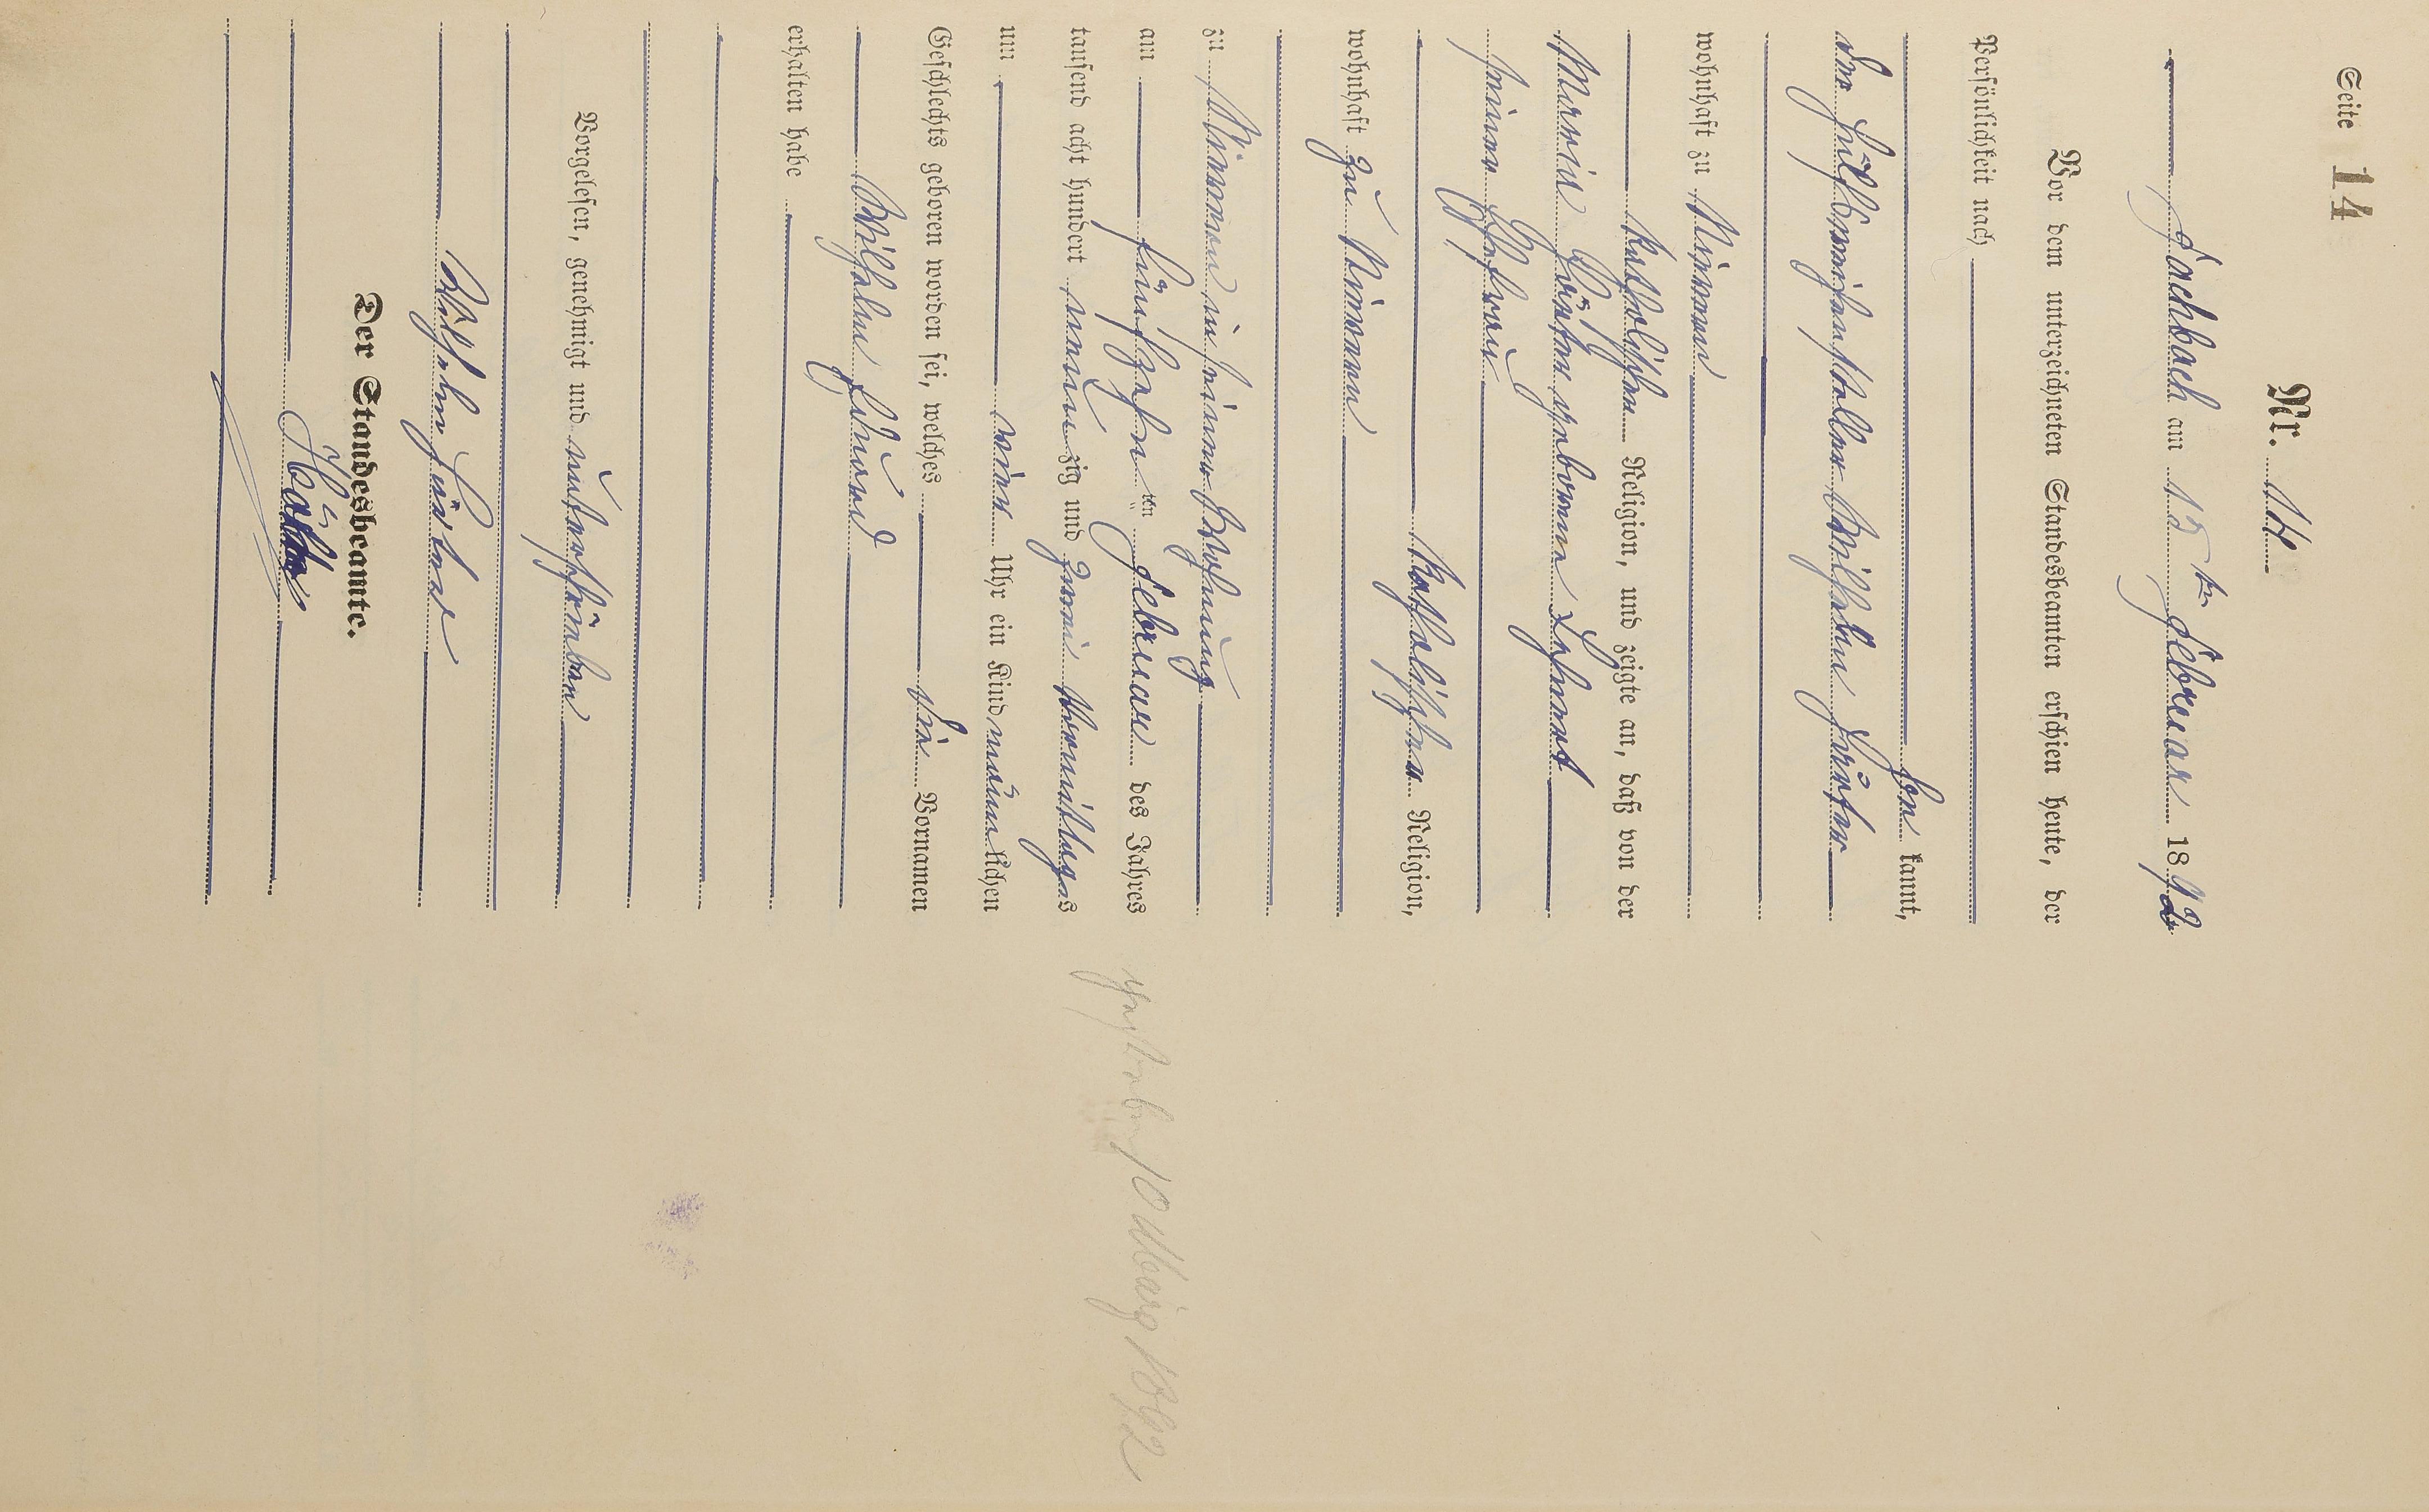 Seite 14
Nr. 14
Fachbach am 15ten Februar 1892
Vor dem unterzeichneten Standesbeamten erschien heute, der
Persönlichkeit nach
kannt,
der Hülfsweichensteller Wilhelm
wohnhaft zu Nievern
katholischer Religion, und zeigte an, daß von der
Maria geborene
seiner Ehefrau
katholischer Religion,
wohnhaft zu Nievern
zu Nievern in seiner Wohnung
am fünfzehnten Februar des Jahres
tausend acht hundert neunzig und zwei Vormittags
um vier Uhr ein Kind männlichen
Geschlechts geboren worden sei, welches die Vornamen
Wilhelm Eduard
erhalten habe
Vorgelesen, genehmigt und unterschrieben
Wilhelm
Der Standesbeamte.
gestorben 10 1892